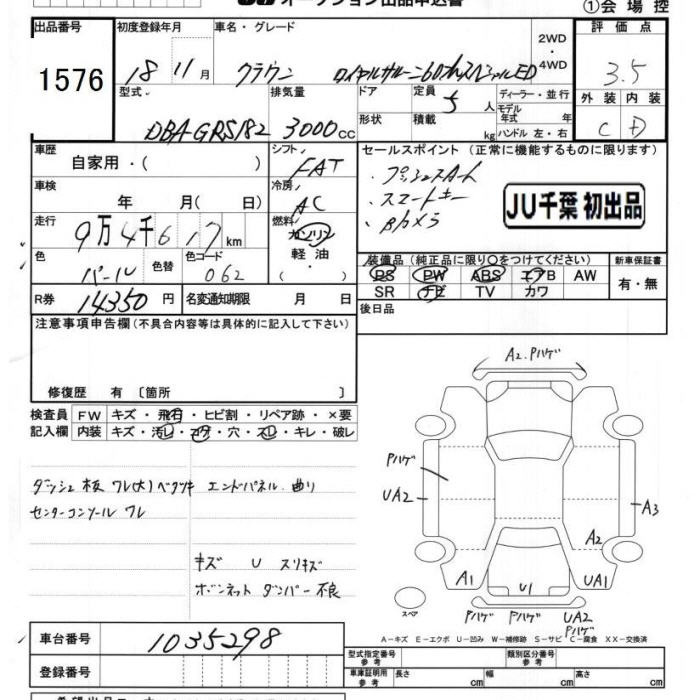 ①会場控
出品番号
1576
初度登録年月
18 11月
車名・グレード
クラウン ロイヤルサルーン60thスペシャルED
2WD
・
4WD
評価点
3.5
外装 内装
C D
型式
DBA-GRS182
排気量
3000cc
ドア
形状
定員
5人
積載
kg
ディーラー・並行
モデル年式 年
ハンドル 左・右
車歴
自家用・( )
シフト
FAT
車検
年 月( 日)
冷房
AC
走行
9万4千617km
燃料
ガソリン
軽油
・
色
パール
色替
色コード
062
R券
14350円
名変通知期限 月 日
セールスポイント(正常に機能するものに限ります)
・プッシュスタート
・スマートキー
・Bカメラ
JU千葉 初出品
装備品(純正品に限り○をつけてください)
PS PW ABS エアB AW
SR ナビ TV カワ
新車保証書
有・無
後日品
注意事項申告欄(不具合内容等は具体的に記入して下さい)
修復歴 有〔箇所 〕
検査員
記入欄
FW キズ・飛石・ヒビ割・リペア跡・×要
内装 キズ・汚レ・コゲ・穴・スレ・キレ・破レ
ダッシュ板 ワレ(大)ベタツキ エンドパネル 曲り
センターコンソール ワレ
キズ U スリキズ
ボンネット ダンパー不良
A2.Pハゲ
Pハゲ
UA2
A3
A2
A1
U1
UA1
スペア
Pハゲ Pハゲ UA2
Pハゲ
A-キズ E-エクボ U-凹み W-補修跡 S-サビ C-腐食 XX-交換済
車台番号
1035298
登録番号
型式指定番号
参考
類別区分番号
参考
車庫証明用
参考
長さ cm 幅 cm 高さ cm